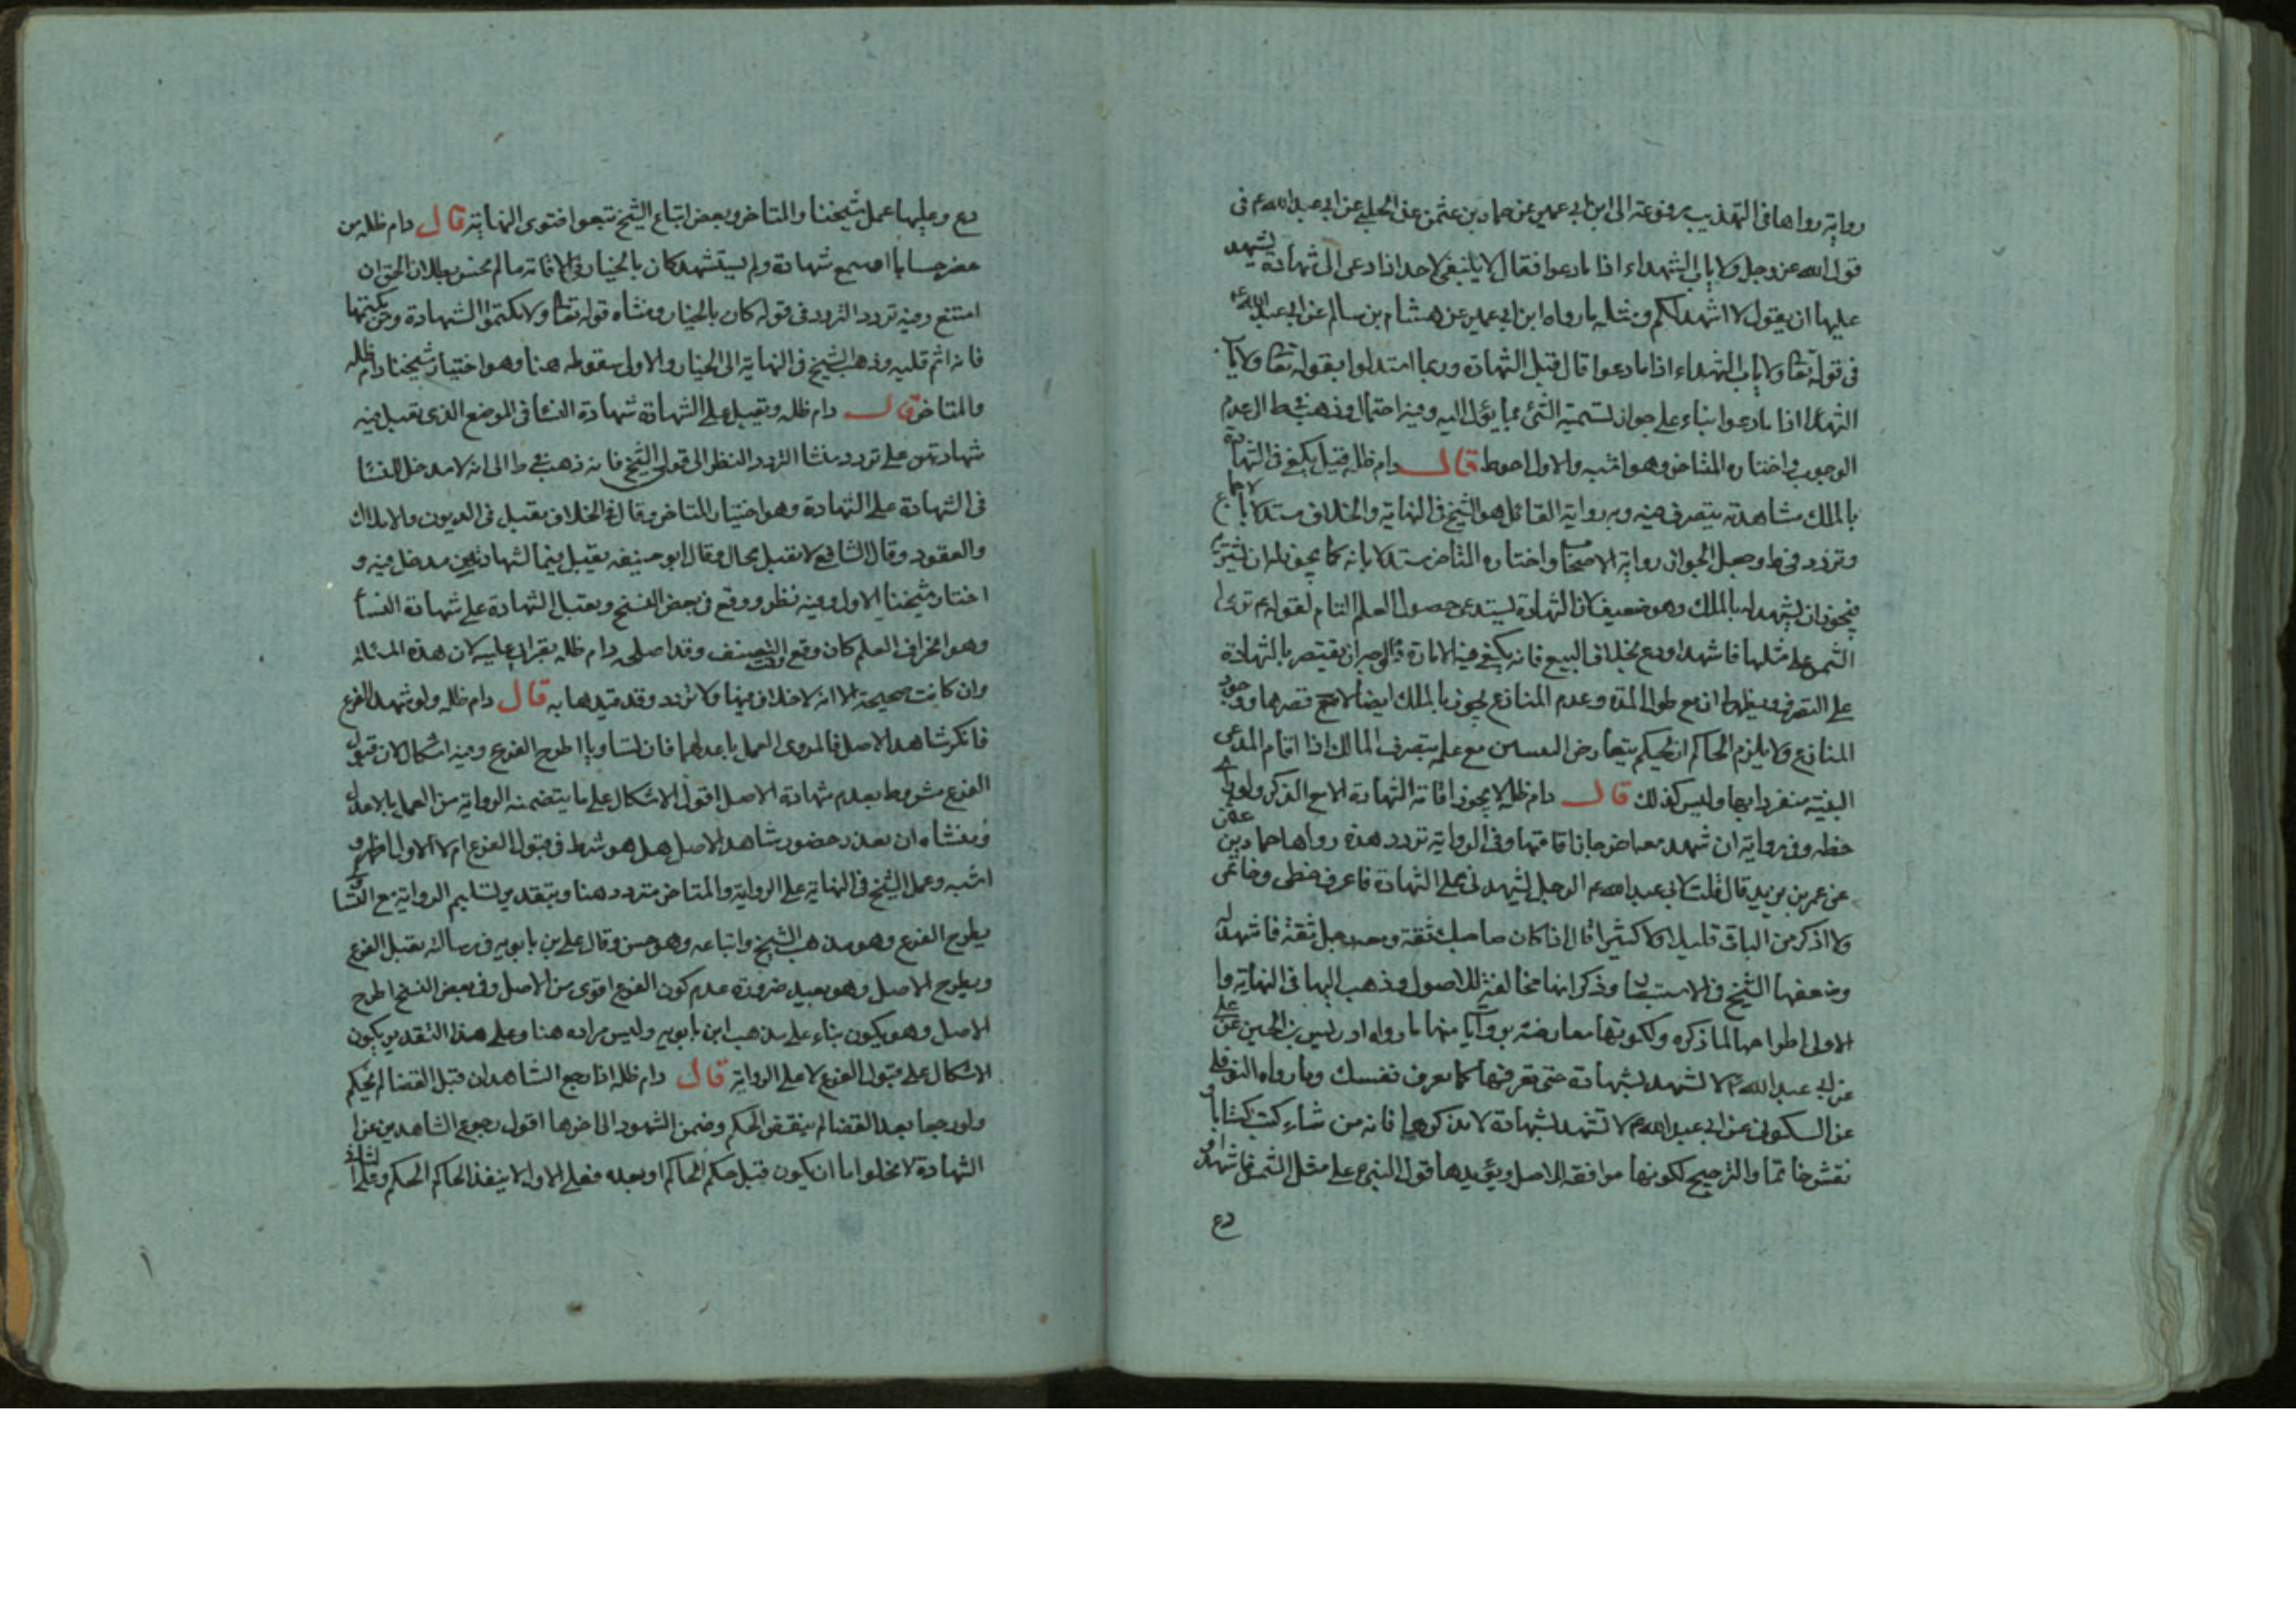 رواية رواها في التهذيب مرفوعة الى ابن ابي عمير عن حماد بن عثمن عن الحلبي عن ابي عبد الله ع في
قول الله عز وجل ولا ياب الشهداء اذا ما دعوا فقال لا ينبغي لاحد اذا دعى الى شهادة ليشهد
عليها ان يقول لا اشهد لكم ومثله ما رواه ابن ابي عمير عن هشام بن سالم عن ابي عبد الله ع
في قوله تعا ولا ياب الشهداء اذا ما دعوا قال قبل الشهادة وربما استدلوا بقوله تعا ولا ياب
الشهدا اذا ما دعوا بناء على جواز تسمية الشئ بما يؤل اليه وفيه احتمال وذهب في ط الى عدم
الوجوب واختاره المتاخر وهو اشبه والاول احوط قال دام ظله قيل يكفي في الشهادة
بالملك مشاهدته يتصرف فيه وبه رواية القائل هو الشيخ في النهاية والخلاف مستدلا بالاجماع
وتردد في ط وجعل الجواز رواية الاصحا واختاره المتاخر مستدلا بانه كما يجوز له ان يشتري
فيجوز ان يشهد له بالملك وهو ضعيف لان الشهادة يستدعى حصول العلم التام لقوله ع ترى
الشمس على مثلها فاشهد او دع بخلاف البيع فانه يكفي فيه الامارة فالوجه ان يقتصر بالشهادة
على التصرف ويظهر ان مع طول المدة وعدم المنازع يجوز بالملك ايضا لا مع قصرها ووجود
المنازع ولا يلزم الحاكم ان يحكم بتعارض مع علمه بتصرف المالك اذا اقام المدعى
البينة منفردا بها وليس كذلك قال دام ظله لا يجوز اقامة الشهادة الا مع الذكر ولو راى
خطه وفي رواية ان شهد معه اخر جاز اقامتها وفي الرواية تردد هذه رواها حماد بن عثمن
عن عمر بن يزيد قال قلت لابي عبد الله ع الرجل يشهدني على الشهادة فاعرف خطى وخاتمى
ولا اذكر من الباقى قليلا ولا كثيرا قال اذا كان صاحبك ثقة ومعه رجل ثقة فاشهد له
وضعفها الشيخ في الاستبصا وذكر انها مخالفة للاصول وذهب اليها في النهاية وا
الاولى اطراحها لما ذكره ولكونها معارضة بروايا منها ما رواه ادريس بن الحسن عن على
عن ابي عبد الله ع لا تشهد بشهادة حتى تعرفها كما تعرف نفسك وما رواه النوفلى
عن السكونى عن ابي عبد الله ع لا تشهد بشهادة لا تذكرها فانه من شاء كتب كتابا و
نقش خاتما والترجيح لكونها موافقة الاصل ويؤيدها قول النبي ع على مثل الشمس فاشهد او
دع
دع وعليها عمل شيخنا والمتاخر وبعض اتباع الشيخ تبعوا فتوى النهاية قال دام ظله من
حضر حسابا او سمع شهادة ولم يستشهد كان بالخيار في الاقامة ما لم يخش بطلان الحق ان
امتنع وفيه تردد التردد في قوله كان بالخيار ومنشاه قوله تعا ولا تكتموا الشهادة ومن يكتمها
فانه اثم قلبه وذهب الشيخ في النهاية الى الخيار والاولى سقوطه هنا وهو اختيار شيخنا دام ظله
والمتاخر قال دام ظله وتقبل على الشهادة شهادة النسا في الموضع الذى تقبل فيه
شهادتهن على تردد منشا التردد النظر الى قولى الشيخ فانه ذهب في ط الى انه لا مدخل للنسا
في الشهادة على الشهادة وهو اختيار المتاخر وقال في الخلاف يقبل في الديون والاملاك
والعقود وقال الشافعي لا تقبل بحال وقال ابو حنيفه يقبل فيما لشهادتهن مدخل فيه و
اختار شيخنا الاول وفيه نظر ووقع في بعض النسخ ويقبل الشهادة على شهادة النسا
وهو انحراف القلم كان وقع وقت التصنيف وقد اصلحه دام ظله بقرائى عليه لان هذه المسئلة
وان كانت صحيحة الا انه لا خلاف فيها ولا تردد وقد قيدها به قال دام ظله ولو شهد الفرع
فانكر شاهد الاصل فالمروى العمل باعدلهما فان تساويا اطرح الفرع وفيه اشكال لان قبول
الفرع مشروط بعدم شهادة الاصل اقول الاشكال على ما يتضمنه الرواية من العمل بالاعدل
ومنشاه ان تعذر حضور شاهد الاصل هل هو شرط في قبول الفرع ام لا الاول اظهر و
اشبه وعمل الشيخ في النهاية على الرواية والمتاخر متردد هنا وبتقدير تسليم الرواية مع التسا
يطرح الفرع وهو مذهب الشيخ واتباعه وهو حسن وقال على بن بابويه في رسالته يقبل الفرع
ويطرح الاصل وهو بعيد ضرورة عدم كون الفرع اقوى من الاصل وفي بعض النسخ اطرح
الاصل وهو يكون بناء على مذهب ابن بابويه وليس مراده هنا وعلى هذا التقدير يكون
الاشكال على قبول الفرع لا على الرواية قال دام ظله اذا رجع الشاهدان قبل القضا لم يحكم
ولو رجعا بعد القضا لم ينقض الحكم وضمن الشهود الى اخرها اقول رجوع الشاهدين عن
الشهادة لا يخلوا اما ان يكون قبل حكم الحاكم او بعده فعلى الاول لا ينفذ الحاكم الحكم وعلى الثانى